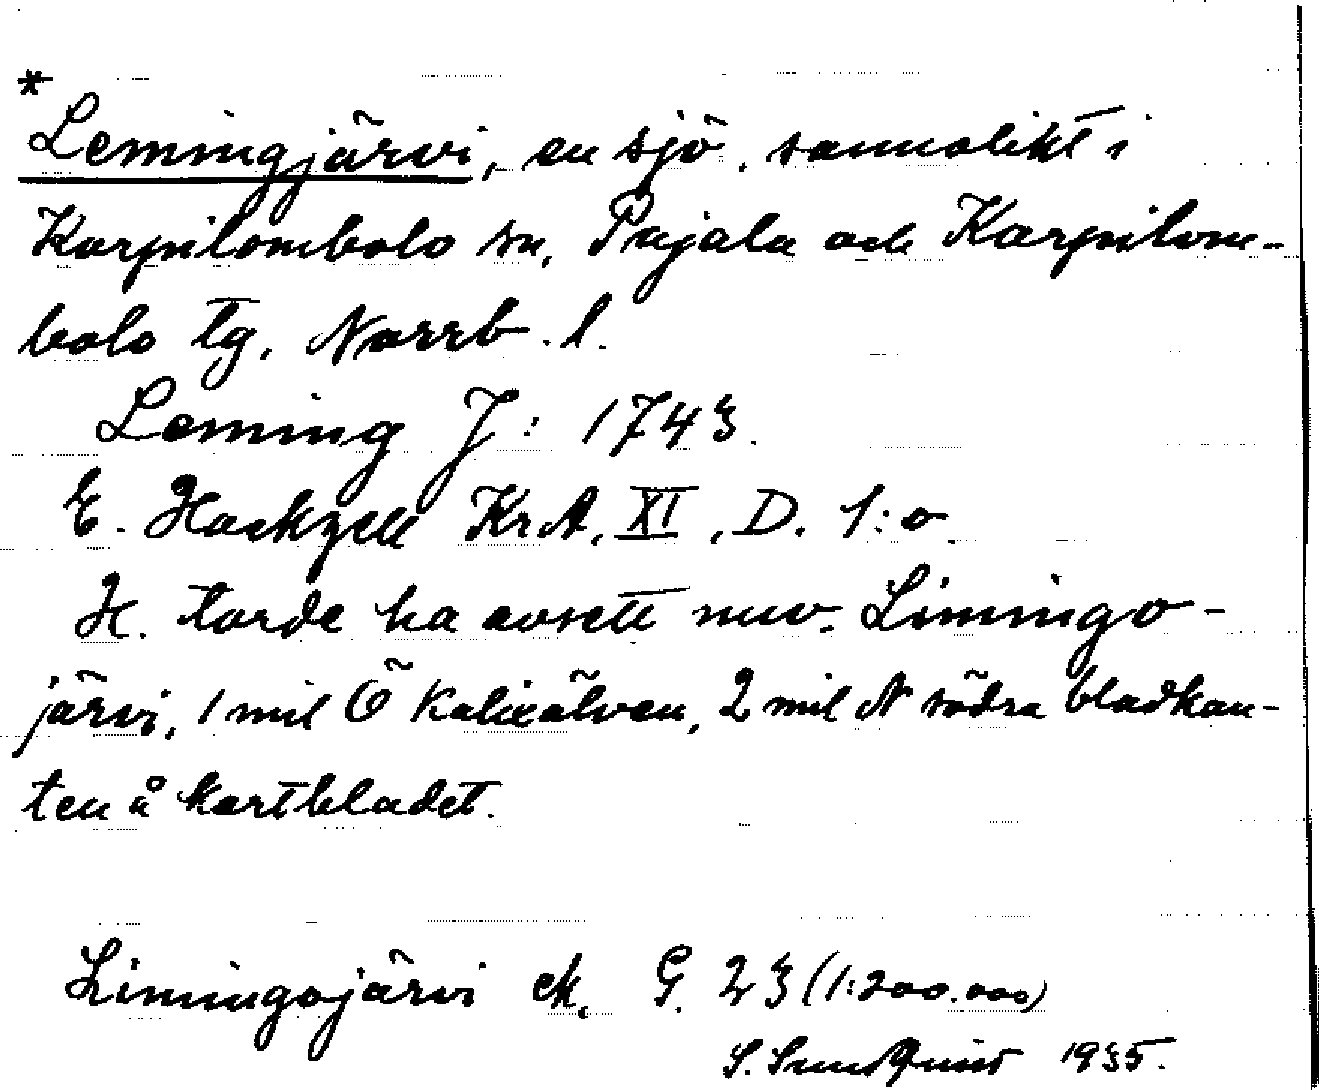 * Lemingjärvi, en sjö, sannolikt i
Karpilombolo sn, Pajala och Karpilom-
bolo tg, Norrb. l.
Leming J: 1743.
E. Hackzell KrA, XI, D. 1:o.
H. torde ha avsett nuv. Limingo-
järvi, 1 mil Ö Kalixälven, 2 mil N södra bladkan-
ten å kartbladet.
Limingojärvi ek. G. 23 (1:200.000)
S. Sundquist 1935.